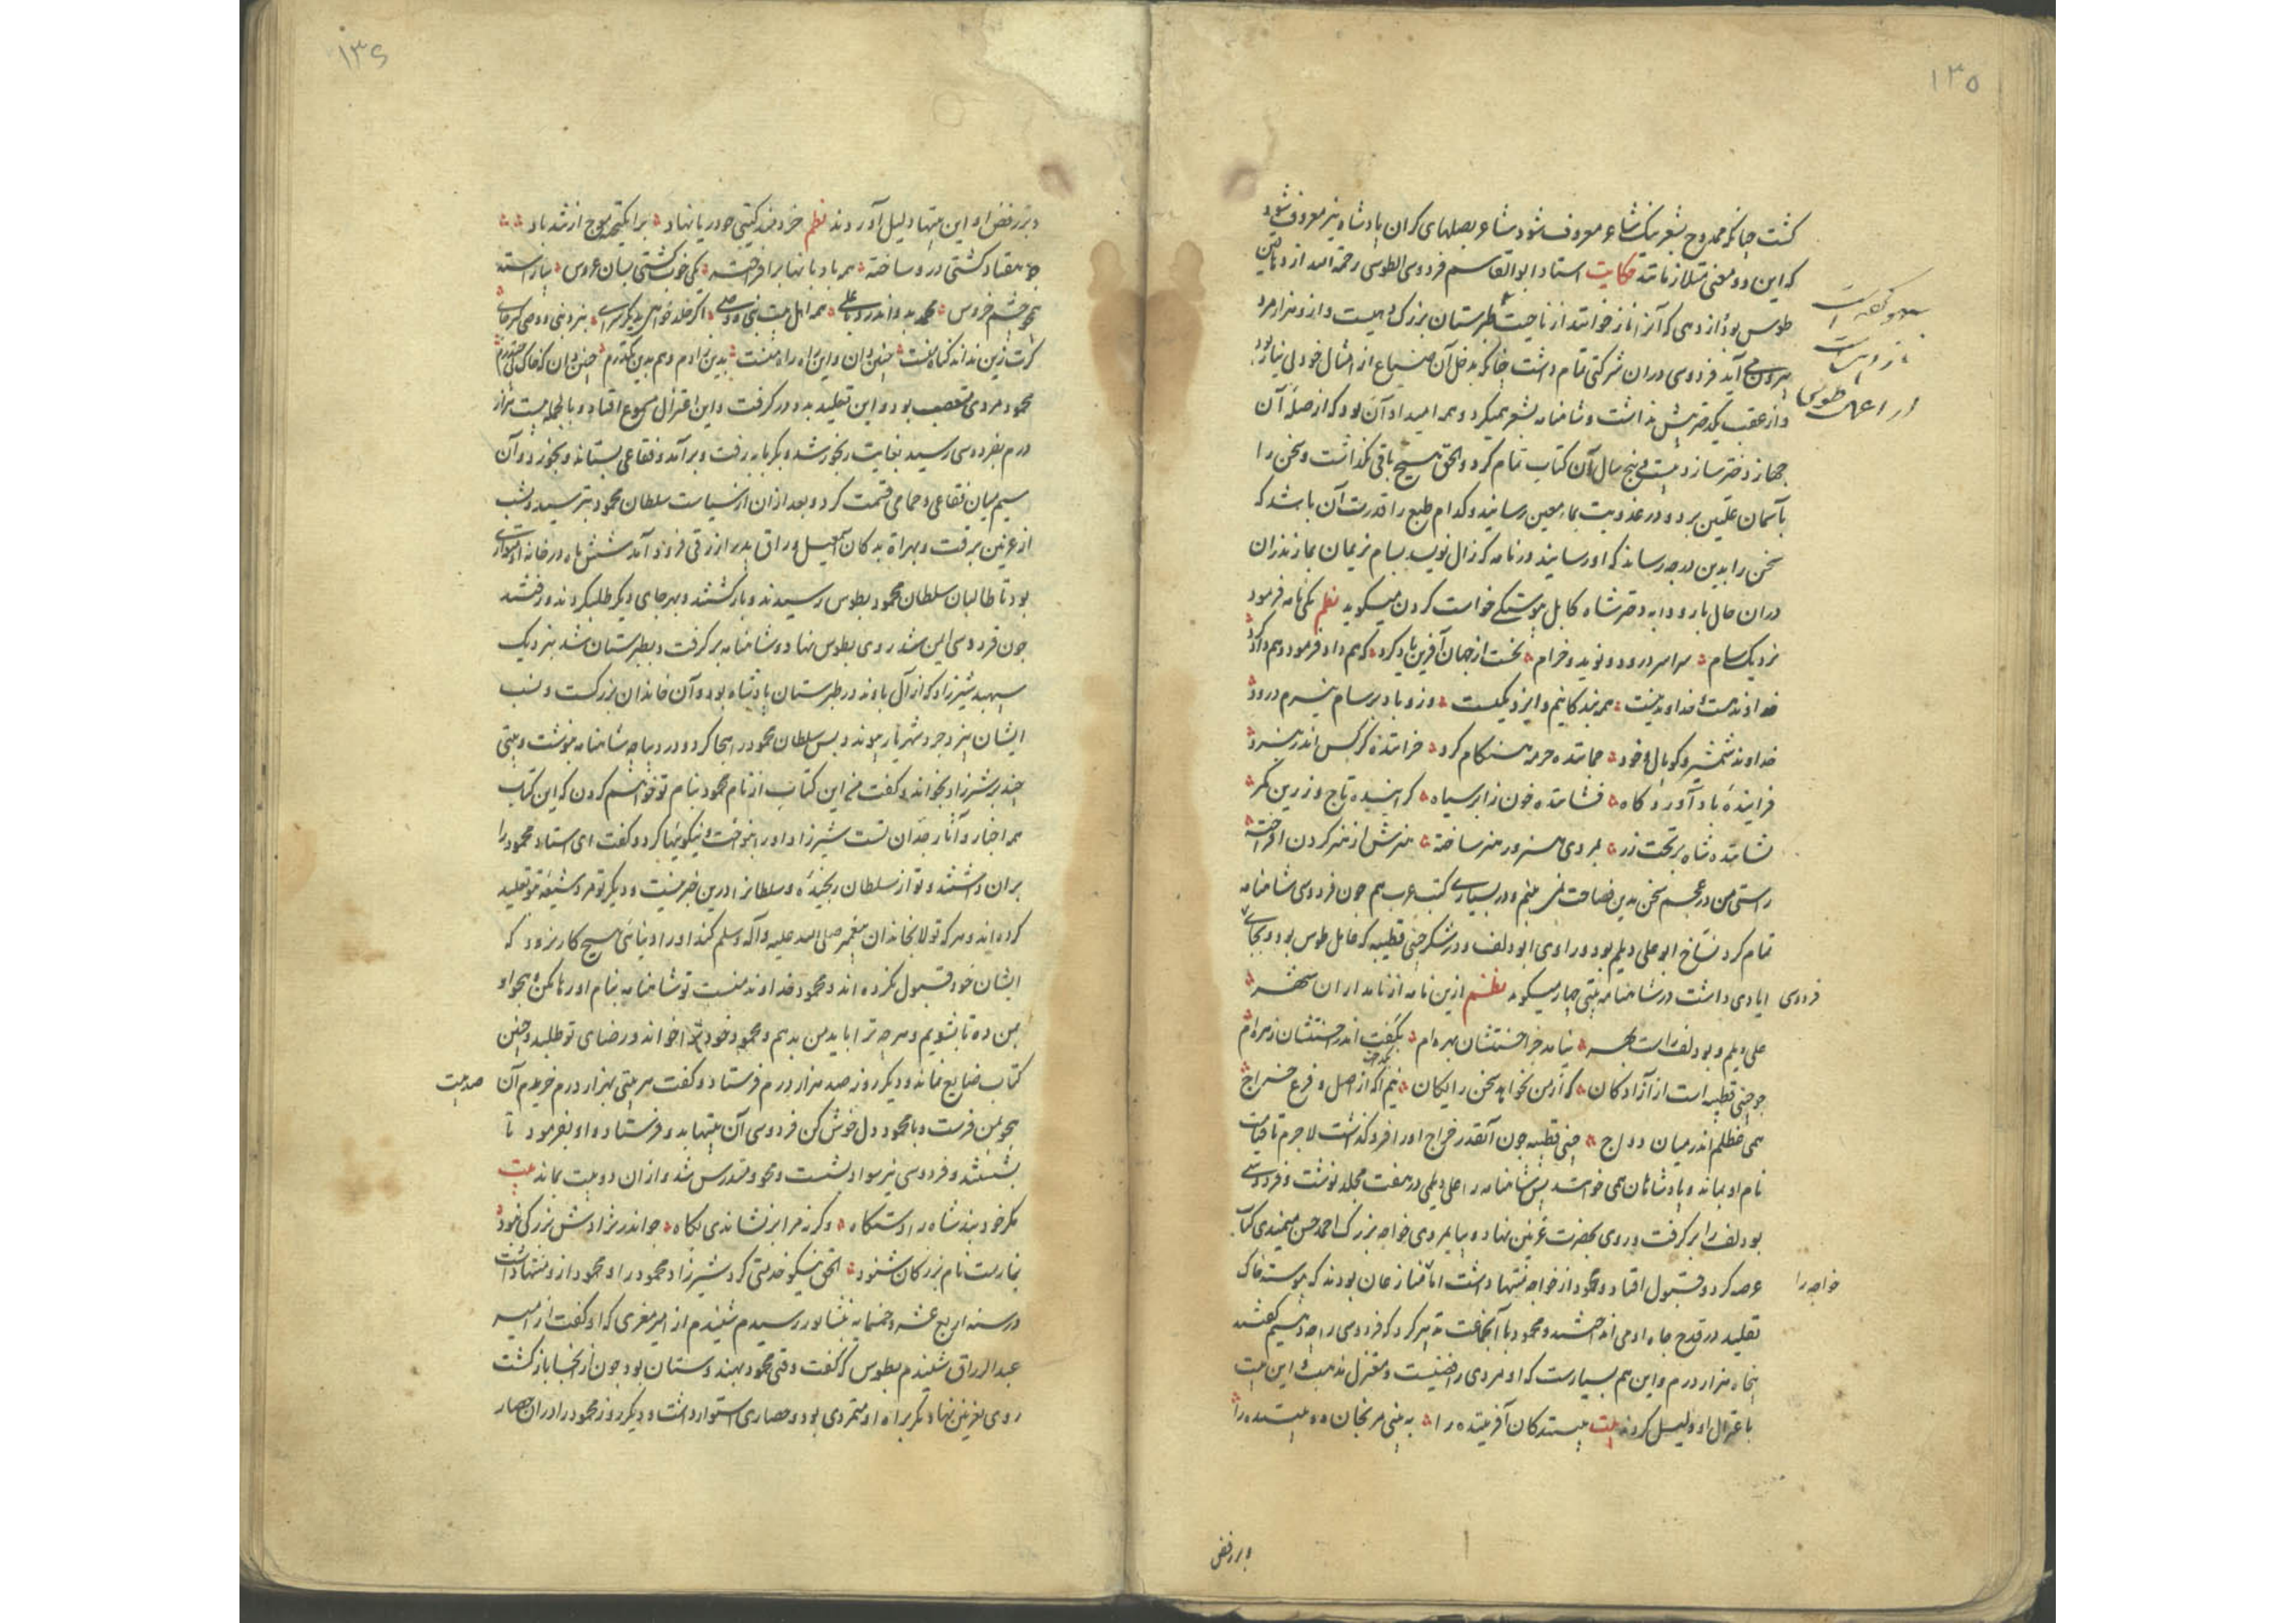 ۱۳۵
گشت چنانکه ممدوح بشعر نیک شاعر معروف شود شاعر بصلهای گران پادشاه نیز معروف شود
که این دو معنی متلازمانند حکایت استاد ابوالقاسم فردوسی الطوسی رحمه الله از دهاقین
طوس بود از دهی که آنرا ناز خوانند از ناحیت طبرستان بزرگ دهیست و ازو هزار مرد
بیرون می آید فردوسی در ان شرکتی تمام داشت چنانکه بدخل آن ضیاع از امثال خود بی نیاز بود
و از عقب یکدختر بیش نداشت و شاهنامه بشعر همیکرد و همه امید او آن بود که از صله آن
جهاز دختر سازد بیست و پنج سال آن کتاب تمام کرد و الحق هیچ باقی نگذاشت و سخن را
بآسمان علیین برد و در عذوبت بماء معین رسانید و کدام طبع را قدرت آن باشد که
سخن را بدین درجه رساند که او رسانید در نامه که زال نویسد بسام نریمان بمازندران
در ان حال با رودابه دختر شاه کابل پیوستگی خواست کردن میگوید نظم یکی نامه فرمود
نزدیک سام سراسر درود و نوید و خرام نخست از جهان آفرین یاد کرد که هم داد فرمود و هم داد کرد
خداوند هست و خداوند نیست همه بندگانیم و ایزد یکیست وزو باد بر سام نیرم درود
خداوند شمشیر و کوپال و خود چماننده چرمه هنگام گرد چراننده کرکس اندر نبرد
فزاینده باد آوردگاه فشاننده خون ز ابر سیاه گراینده تاج و زرین کمر
نشاننده شاه بر تخت زر بمردی هنر در هنر ساخته هنرش از هنر گردن افراخته
راستی من در عجم سخن بدین فصاحت نمی بینم و در بسیاری کتب عرب هم چون فردوسی شاهنامه
تمام کرد نساخ ابو علی دیلم بود و راوی ابو دلف و در شکر حیی قطیبه که عامل طوس بود و بجای
فردوسی ایادی داشت در شاهنامه بیتی چهار میگوید نظم ازین نامه از نامداران شهر
علی دیلم و بودلف راست بهر نیامد جز احسنتشان بهره ام بکفت اندر احسنتشان زهره ام
چو حیی قطیبه است از آزادگان که از من نخواهد سخن رایگان نیم آگه از اصل و فرع خراج
همی غلطم اندر میان دواج حیی قطیبه چون آنقدر خراج او را فرو گذاشت لاجرم تا قیامت
نام او بماند و پادشاهان همی خوانند پس شاهنامه را علی دیلمی در هفت مجلد نوشت و فردوسی
بودلف را بر گرفت و روی بحضرت غزنین نهاد و بپایمردی خواجه بزرگ احمد حسن میمندی کتاب
عرضه کرد و قبول افتاد و محمود از خواجه منتها داشت اما خواجه را منازعان بودند که پیوسته خاک
تقلید در قدح جاه او می انداختند و محمود با آنجماعت تدبیر کرد که فردوسی را چه دهیم گفتند
پنجاه هزار درم و این هم بسیارست که او مردی رافضیست و معتزلی مذهب و این بیت
با عتزال او دلیل کردند بیت ببینندگان آفریننده را نه بینی مرنجان دو بیننده را
و بر رفض
۱۳۶
و بر رفض او این بیتها دلیل آوردند نظم خردمند گیتی چو دریا نهاد بر انگیخته موج ازو تند باد
چو هفتاد کشتی درو ساخته همه بادبانها بر افراخته یکی خوب کشتی بسان عروس بیاراسته
همچو چشم خروس محمد بدو اندرون با علی همه اهل بیت نبی و وصی اگر خلد خواهی بدیگر سرای بنزد نبی و وصی گیر جای
گرت زین بد آید گناه منست چنین دان و این راه راه منست بدین زادم و هم بدین بگذرم چنین دان که خاک پی حیدرم
محمود مردی متعصب بود و این تقلید بدو در گرفت و این اعتزال مسموع افتاد و بالجمله بیست هزار
درم بفردوسی رسید بغایت رنجور شد و بگرمابه رفت و بر آمد و فقاعی بستاند و بخورد و آن
سیم میان فقاعی و حمامی قسمت کرد و بعد ازان از سیاست سلطان محمود بترسید و بشب
از غزنین برفت و بهراة بدکان اسمعیل وراق پدر ازرقی فرود آمد شش ماه در خانه او متواری
بود تا طالبان سلطان محمود بطوس رسیدند و باز گشتند و بهر جای دیگر طلب کردند و رفتند
چون فردوسی ایمن شد روی بطوس نهاد و شاهنامه بر گرفت و بطبرستان شد بنزدیک
سپهبد شیرزاد که از آل باوند در طبرستان پادشاه بود و آن خاندان بزرگست و نسب
ایشان بیزدجرد شهریار پیوندد پس سلطان محمود را هجا کرد و در دیباچه شاهنامه بنوشت و بیتی
چند بر شیرزاد بخواند و گفت من این کتاب از نام محمود بنام تو خواهم کردن که این کتاب
همه اخبار و آثار جدان تست شیرزاد او را بنواخت و نیکوییها کرد و گفت ای استاد محمود را
بران داشتند و تو از سلطان رنجیده و سلطانرا درین خبر نیست و دیگر تو مرد شیعه و تو تقلید
کرده اند و هر که تولا بخاندان پیغمبر صلی الله علیه وآله وسلم کند او را دنیائی هیچ کار نرود که
ایشان خود قبول نکرده اند و محمود خداوند منست تو شاهنامه بنام او رها کن و هجو او
بمن ده تا بشویم و هر چه ترا باید من بدهم و محمود خود ترا خواند و رضای تو طلبد و چنین
کتاب ضایع نماند و دیگر روز صد هزار درم فرستاد و گفت هر بیتی بهزار درم خریدم آن صد بیت
هجو بمن فرست و با محمود دل خوش کن فردوسی آن بیتها بدو فرستاد و او بفرمود تا
بشستند و فردوسی نیز سواد بشست و محو و مندرس شد و ازان دو بیت بماند بیت
مگر خود بند شاه را دستگاه وگرنه مرا بر نشاندی بگاه چو اندر نژادش بزرگی نبود
نیارست نام بزرگان شنود الحق نیکو خدمتی کرد شیرزاد محمود را و محمود ازو منتها داشت
در سنه اربع عشر و خمسمایه بنشابور رسیدم شنیدم از امیر معزی که او گفت از امیر
عبدالرزاق شنیدم بطوس که گفت وقتی محمود بهندوستان بود چون از آنجا باز گشت
روی بغزنین نهاد مگر براه او متمردی بود و حصاری استوار داشت و دیگر روز محمود را در ان حصار